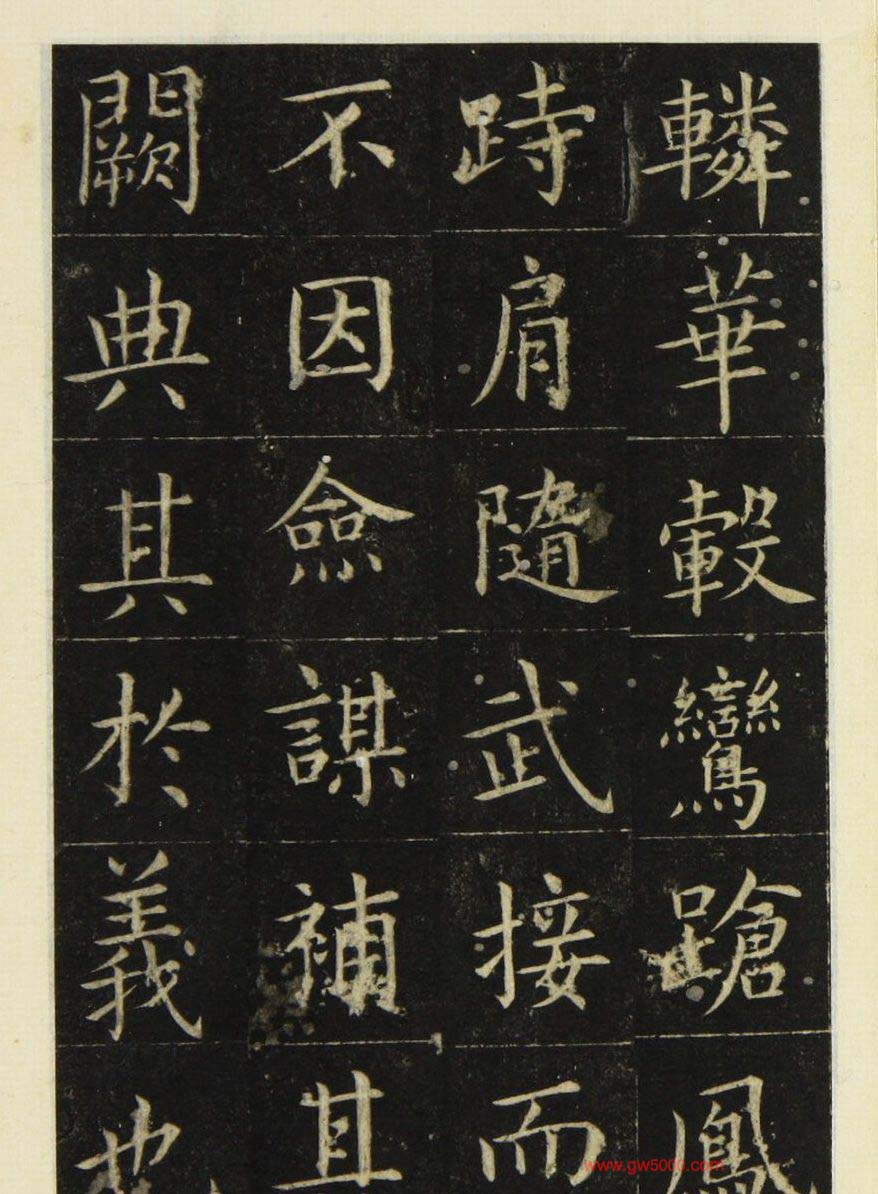 轔華轂鸞蹌鳳
跱肩隨武接而
不因僉謀補其
闕典其於義也
www.gw5000.com